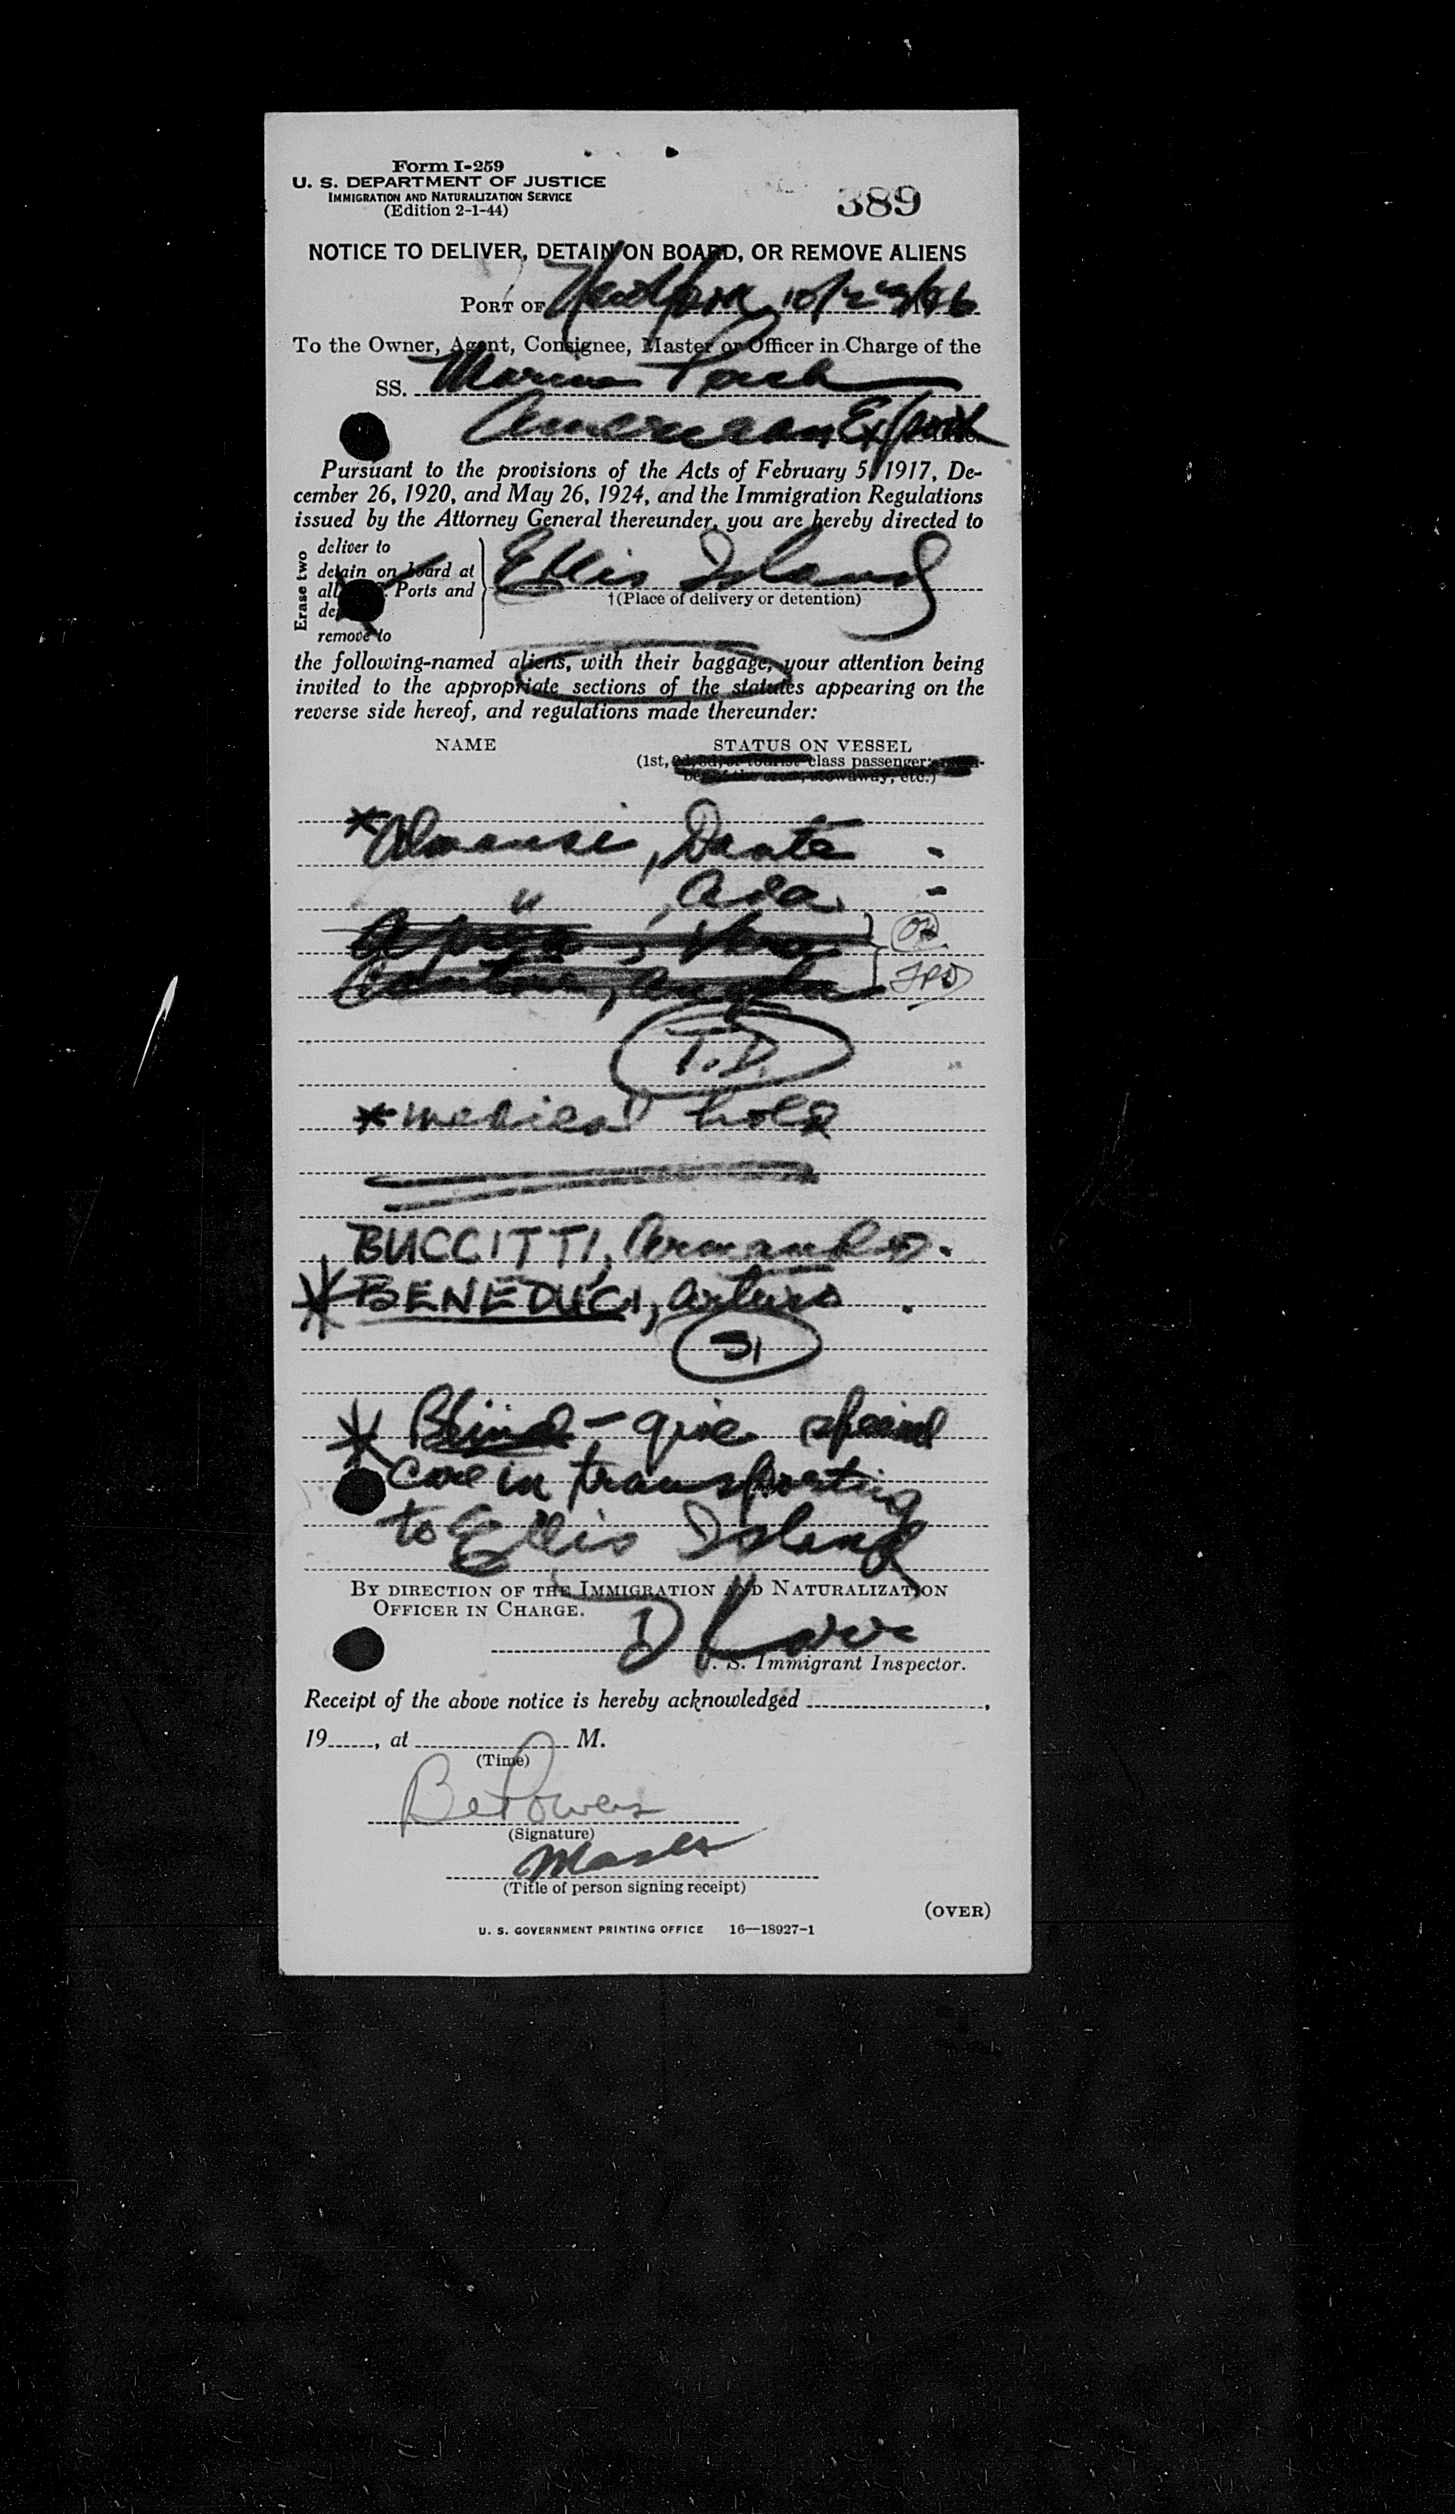 Form I-259
U. S. DEPARTMENT OF JUSTICE
IMMIGRATION AND NATURALIZATION SERVICE
(Edition 2-1-44)
389
NOTICE TO DELIVER, DETAIN ON BOARD, OR REMOVE ALIENS
PORT OF 10/23/46
To the Owner, Agent, Consignee, Master or Officer in Charge of the
SS. Marine Perch
American Export
Pursuant to the provisions of the Acts of February 5, 1917, De-
cember 26, 1920, and May 26, 1924, and the Immigration Regulations
issued by the Attorney General thereunder, you are hereby directed to
Erase two
deliver to
detain on board at
all Ports and
remove to
Ellis Island
†(Place of delivery or detention)
the following-named aliens, with their baggage, your attention being
invited to the appropriate sections of the statutes appearing on the
reverse side hereof, and regulations made thereunder:
NAME STATUS ON VESSEL
(1st, 2d, 3d, or tourist class passenger; mem-
ber of the crew, stowaway, etc.)
*Almansi, Dante -
" , Ada -
T.D.
*medical hold
BUCCITTI, Armando.
*BENEDUCI, Arturo .
SI
* Blind - give special
care in transporting
to Ellis Island
BY DIRECTION OF THE IMMIGRATION AND NATURALIZATION
OFFICER IN CHARGE.
U. S. Immigrant Inspector.
Receipt of the above notice is hereby acknowledged ,
19 , at M.
(Time)
(Signature)
(Title of person signing receipt)
(OVER)
U. S. GOVERNMENT PRINTING OFFICE 16—18927-1